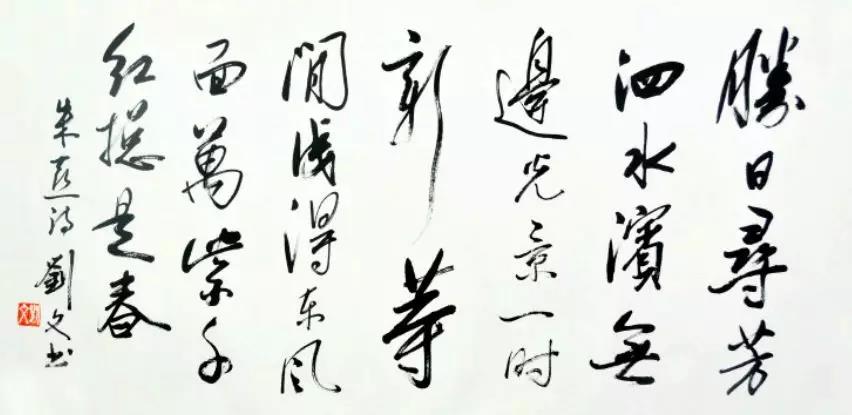 勝日尋芳
泗水濱無
邊光景一时
新等
閒識得东风
面萬紫千
红揔是春
朱熹诗 劉文书